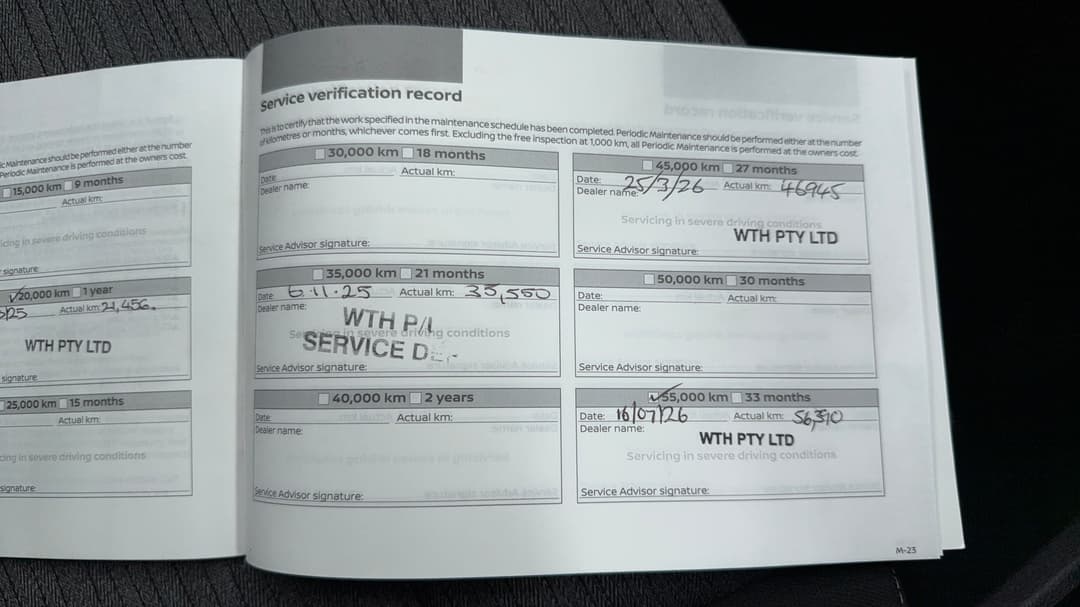 c Maintenance should be performed either at the number
Periodic Maintenance is performed at the owners cost.
15,000 km 9 months
Actual km:
icing in severe driving conditions
signature:
20,000 km 1 year
Actual km: 21,456.
WTH PTY LTD
signature:
25,000 km 15 months
Actual km:
cing in severe driving conditions
signature:
Service verification record
This is to certify that the work specified in the maintenance schedule has been completed. Periodic Maintenance should be performed either at the number
of kilometres or months, whichever comes first. Excluding the free inspection at 1,000 km, all Periodic Maintenance is performed at the owners cost.
30,000 km 18 months
Date:
Actual km:
Dealer name:
Service Advisor signature:
35,000 km 21 months
Date: 6.11.25
Actual km: 35,550
Dealer name:
WTH P/L
in severe driving conditions
SERVICE
Service Advisor signature:
40,000 km 2 years
Date:
Actual km:
Dealer name:
Service Advisor signature:
45,000 km 27 months
Date: 25/3/26
Actual km: 46945
Dealer name:
Servicing in severe driving conditions
WTH PTY LTD
Service Advisor signature:
50,000 km 30 months
Date:
Actual km:
Dealer name:
Service Advisor signature:
55,000 km 33 months
Date: 16/07/26
Actual km: 56,310
Dealer name:
WTH PTY LTD
Servicing in severe driving conditions
Service Advisor signature:
M-23